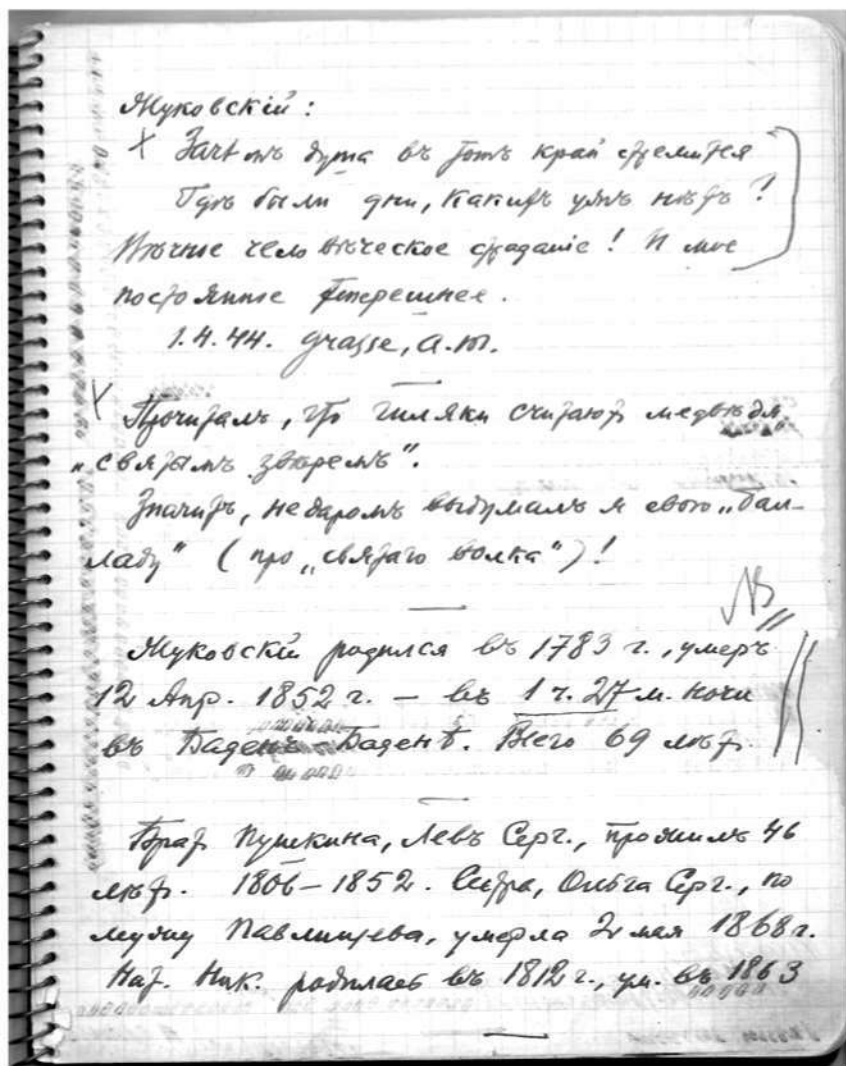 Жуковскій:
X Зачѣмъ душа въ тотъ край стремится
Гдѣ были дни, какихъ ужъ нѣтъ?
Вѣчное человѣческое страданіе! И мое
постоянное теперешнее.
1.4.44. Grasse, A.M.
X Прочиталъ, что гиляки считаютъ медвѣдя
„святымъ звѣремъ“.
Значитъ, недаромъ выдумалъ я свою „бал-
ладу“ (про „святаго волка“)!
NB
Жуковскій родился въ 1783 г., умеръ
12 Апр. 1852 г. – въ 1 ч. 27 м. ночи
въ Баденъ-Баденѣ. Всего 69 лѣтъ
Братъ Пушкина, Левъ Серг., прожилъ 46
лѣтъ. 1806–1852. Сестра, Ольга Серг., по
мужу Павлищева, умерла 2 мая 1868 г.
Нат. Ник. родилась въ 1812 г., ум. въ 1863